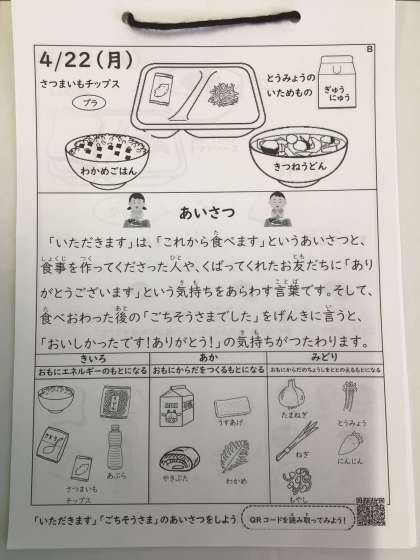 B
4/22(月)
さつまいもチップス
プラ
とうみょうの
いためもの
ぎゅう
にゅう
わかめごはん
きつねうどん
あいさつ
「いただきます」は、「これから食べます」というあいさつと、
食事を作ってくださった人や、くばってくれたお友だちに「あり
がとうございます」という気持ちをあらわす言葉です。そして、
食べおわった後の「ごちそうさまでした」をげんきに言うと、
「おいしかったです!ありがとう!」の気持ちがつたわります。
きいろ
おもにエネルギーのもとになる
あか
おもにからだをつくるもとになる
みどり
おもにからだのちょうしをととのえるもとになる
さつまいも
チップス
あぶら
うすあげ
やきぶた
わかめ
たまねぎ
とうみょう
ねぎ
にんじん
もやし
「いただきます」「ごちそうさま」のあいさつをしよう
QRコードを読み取ってみよう!